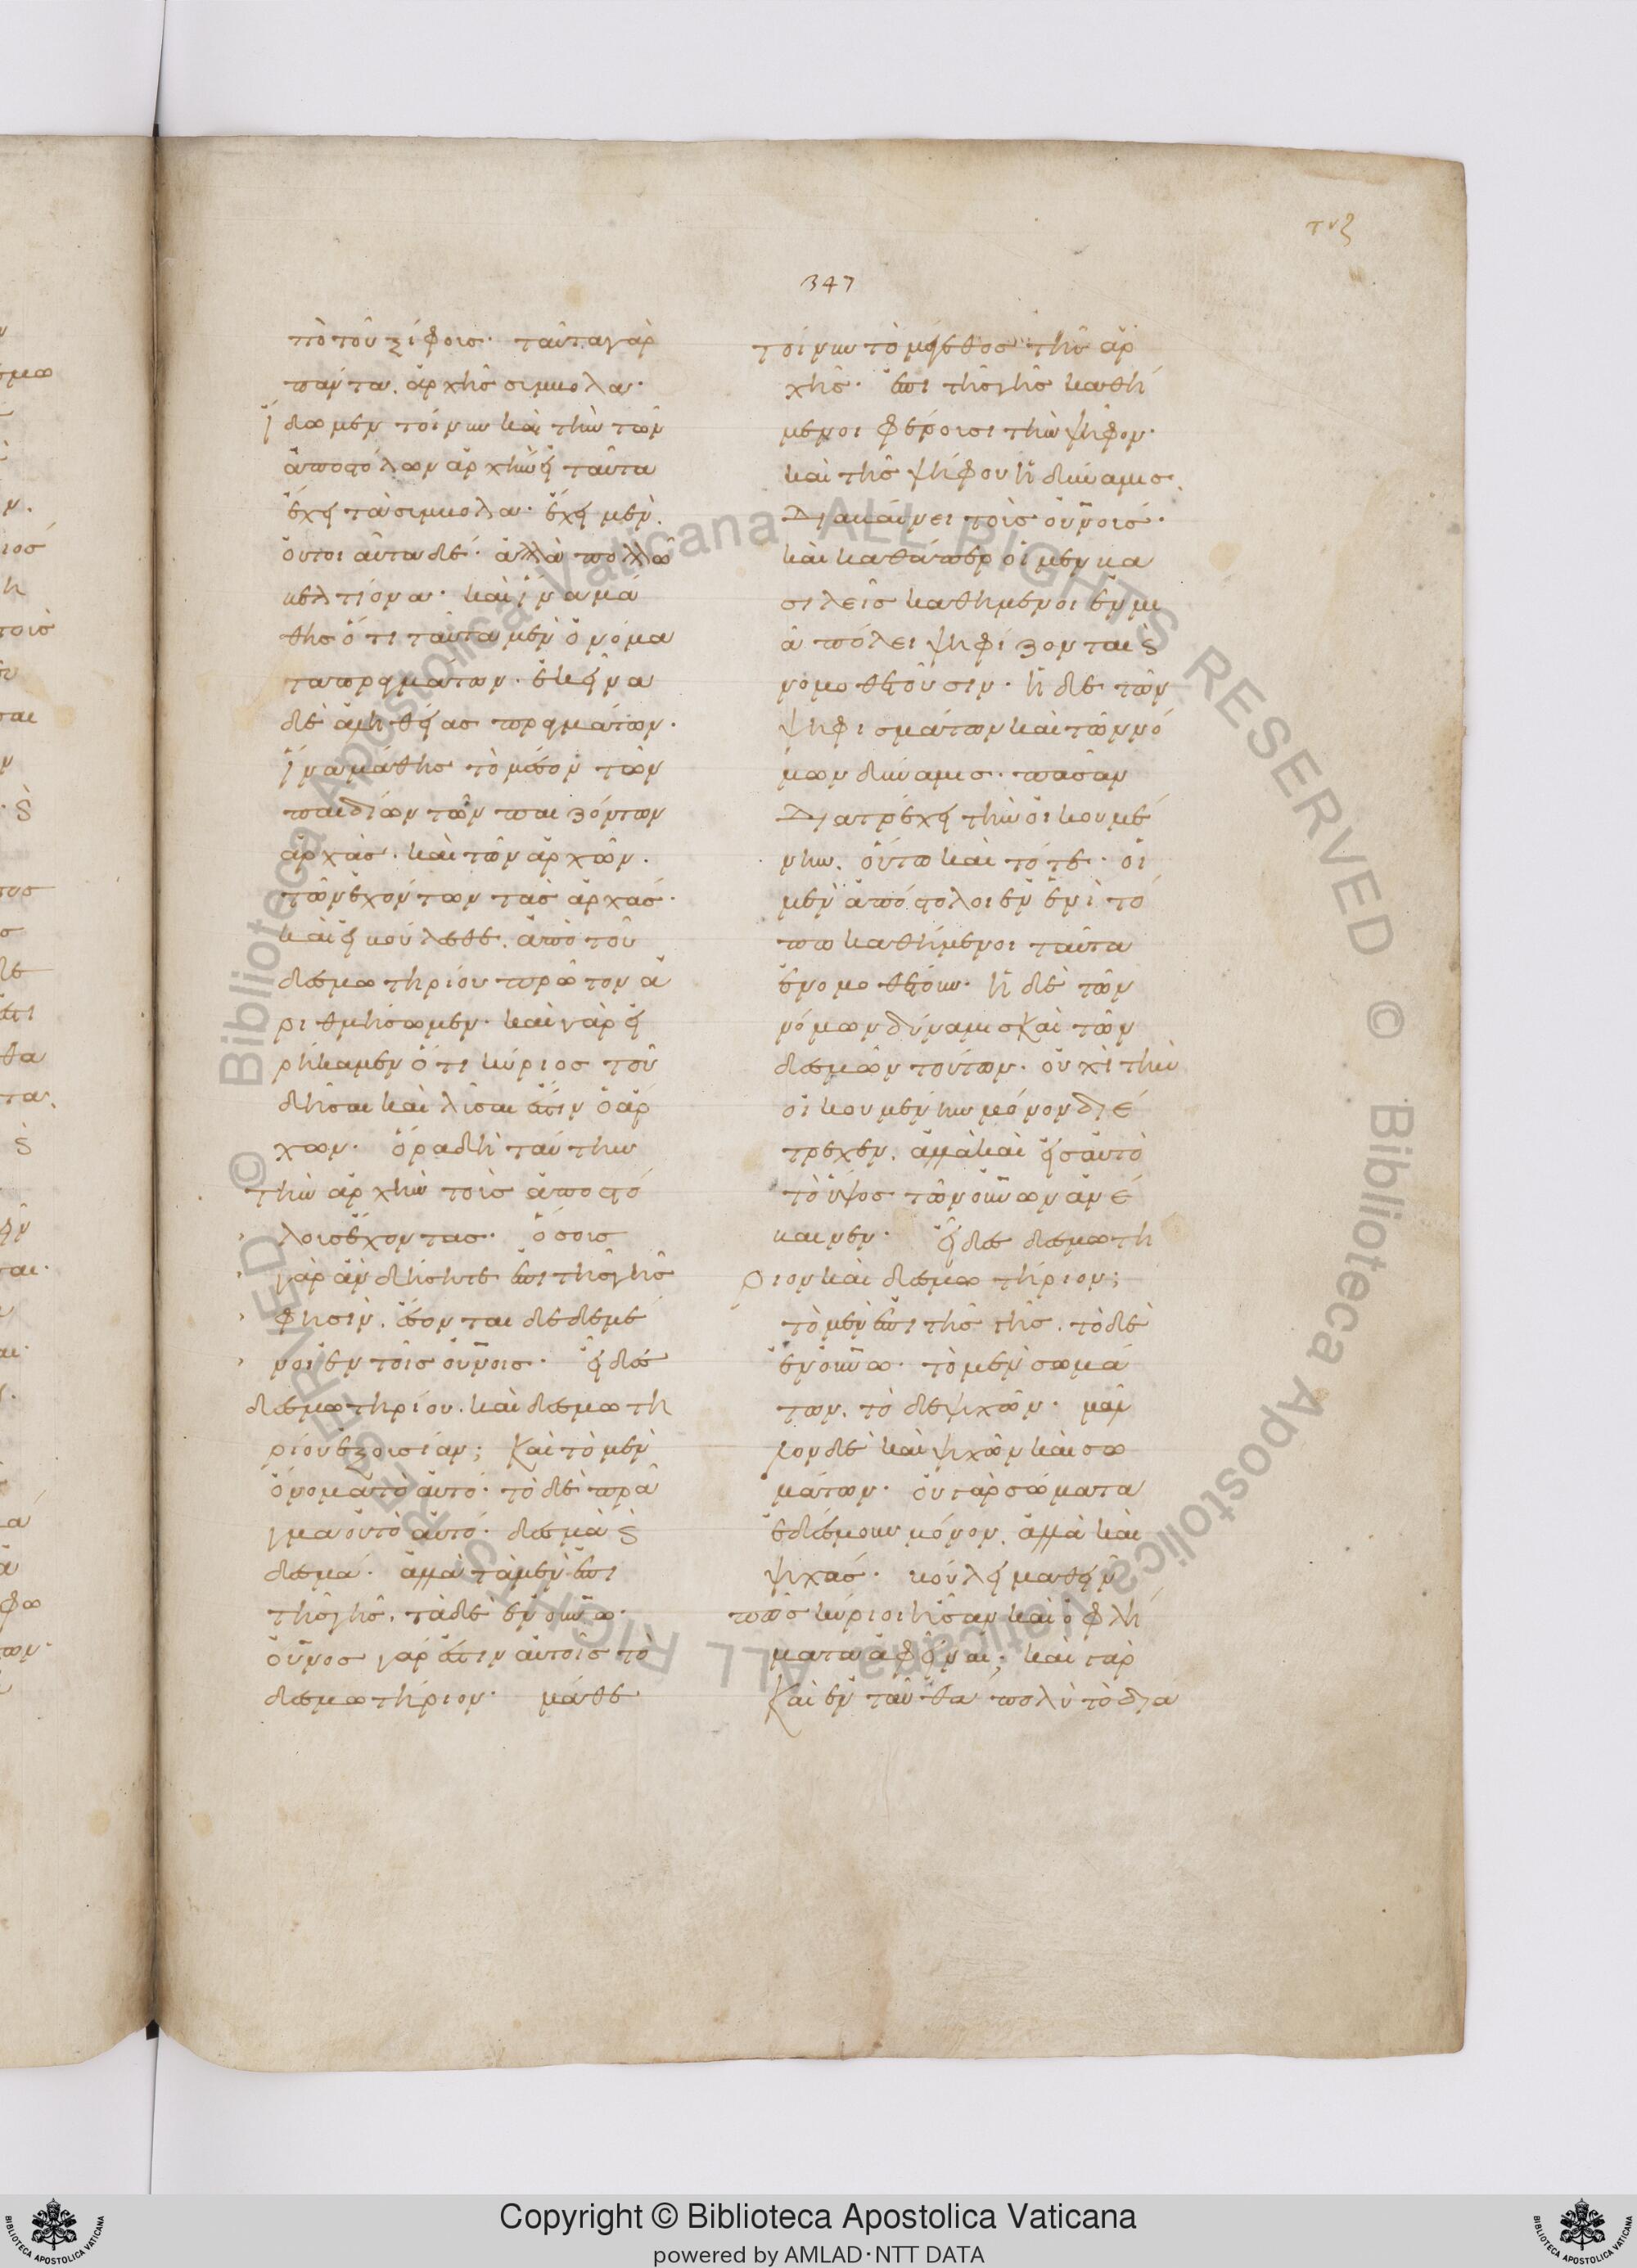 τνζ
347
πὸ τοῦ ξίφους· ταῦτα γὰρ
πάντα, ἀρχῆς σύμβολα·
ἴδωμεν τοίνυν καὶ τὴν τῶν
ἀποστόλων ἀρχὴν εἰ ταῦτα
ἔχει τὰ σύμβολα· ἔχει μὲν
οὖν τοιαῦτα δέ· ἀλλὰ πολλῶ
βελτίονα· καὶ ἵνα μά
θης ὅτι ταῦτα μὲν ὀνόμα
τα πραγμάτων· ἐκεῖνα
δὲ ἀληθείας πραγμάτων·
ἵνα μάθης τὸ μέσον τῶν
παιδίων τῶν παιζόντων
ἀρχάς· καὶ τῶν ἀρχῶν·
τῶν ἐχόντων τὰς ἀρχάς·
καὶ εἰ βούλεσθε, ἀπὸ τοῦ
δεσμωτηρίου πρῶτον ἀ
ριθμήσωμεν· καὶ γὰρ εἰ
ρήκαμεν ὅτι κύριος τοῦ
δῆσαι καὶ λῦσαι ἐστὶν ὁ ἄρ
χων· ὅρα δὴ ταύτην
τὴν ἀρχὴν τοὺς ἀποστό
λους ἔχοντας· ὅσους
γὰρ ἂν δήσητε ἐπὶ τῆς γῆς
φησὶν, ἔσονται δεδεμέ
νοι ἐν τοῖς οὐνοις· εἶδες
δεσμωτηρίου, καὶ δεσμωτη
ρίου ἐξουσίαν; καὶ τὸ μὲν
ὄνομα τὸ αὐτό· τὸ δὲ πρᾶ
γμα οὐ τὸ αὐτό· δεσμὰ ϗ
δεσμά· ἀλλὰ τὰ μὲν ἐπὶ
τῆς γῆς, τὰ δὲ ἐν οὐνω·
οὐνος γάρ ἐστιν αὐτοῖς τὸ
δεσμωτήριον· μάθε
τοίνυν τὸ μέγεθος τῆς ἀρ
χῆς· ἐπὶ τῆς γῆς καθή
μενοι φέρουσι τὴν ψῆφον·
καὶ τῆς ψήφου ἡ δύναμις
διαβαίνει τοὺς οὐνούς·
καὶ καθάπερ οἱ μὲν βα
σιλεῖς καθήμενοι ἐν μι
ᾶ πόλει ψηφίζονται ϗ
νομοθετοῦσιν· ἡ δὲ τῶν
ψηφισμάτων καὶ τῶν νό
μων δύναμις· πᾶσαν
διατρέχει τὴν οἰκουμέ
νην, οὕτω καὶ τότε· οἱ
μὲν ἀπόστολοι ἐν ἑνὶ τό
πω καθήμενοι ταῦτα
ἐνομοθέτουν· ἡ δὲ τῶν
νόμων δύναμις καὶ τῶν
δεσμῶν τούτων· οὐχὶ τὴν
οἰκουμένην μόνον διέ
τρεχεν, ἀλλὰ καὶ εἰς αὐτὸ
τὸ ὕψος τῶν οὐνων ἀνέ
βαινεν· εἶδες δεσμωτή
ριον καὶ δεσμωτήριον;
τὸ μὲν ἐπὶ τῆς γῆς, τὸ δὲ
ἐν οὐνω· τὸ μὲν σωμά
των, τὸ δὲ ψυχῶν· μᾶλ
λον δὲ καὶ ψυχῶν καὶ σω
μάτων· οὐ γὰρ σώματα
ἐδέσμουν μόνον, ἀλλὰ καὶ
ψυχάς· βούλει μαθεῖν
πῶς κύριοι ἦσαν καὶ ὀφλή
ματα ἀφεῖναι; καὶ γὰρ
καὶ ἐνταῦθα πολὺ τὸ δια
Copyright © Biblioteca Apostolica Vaticana
powered by AMLAD·NTT DATA